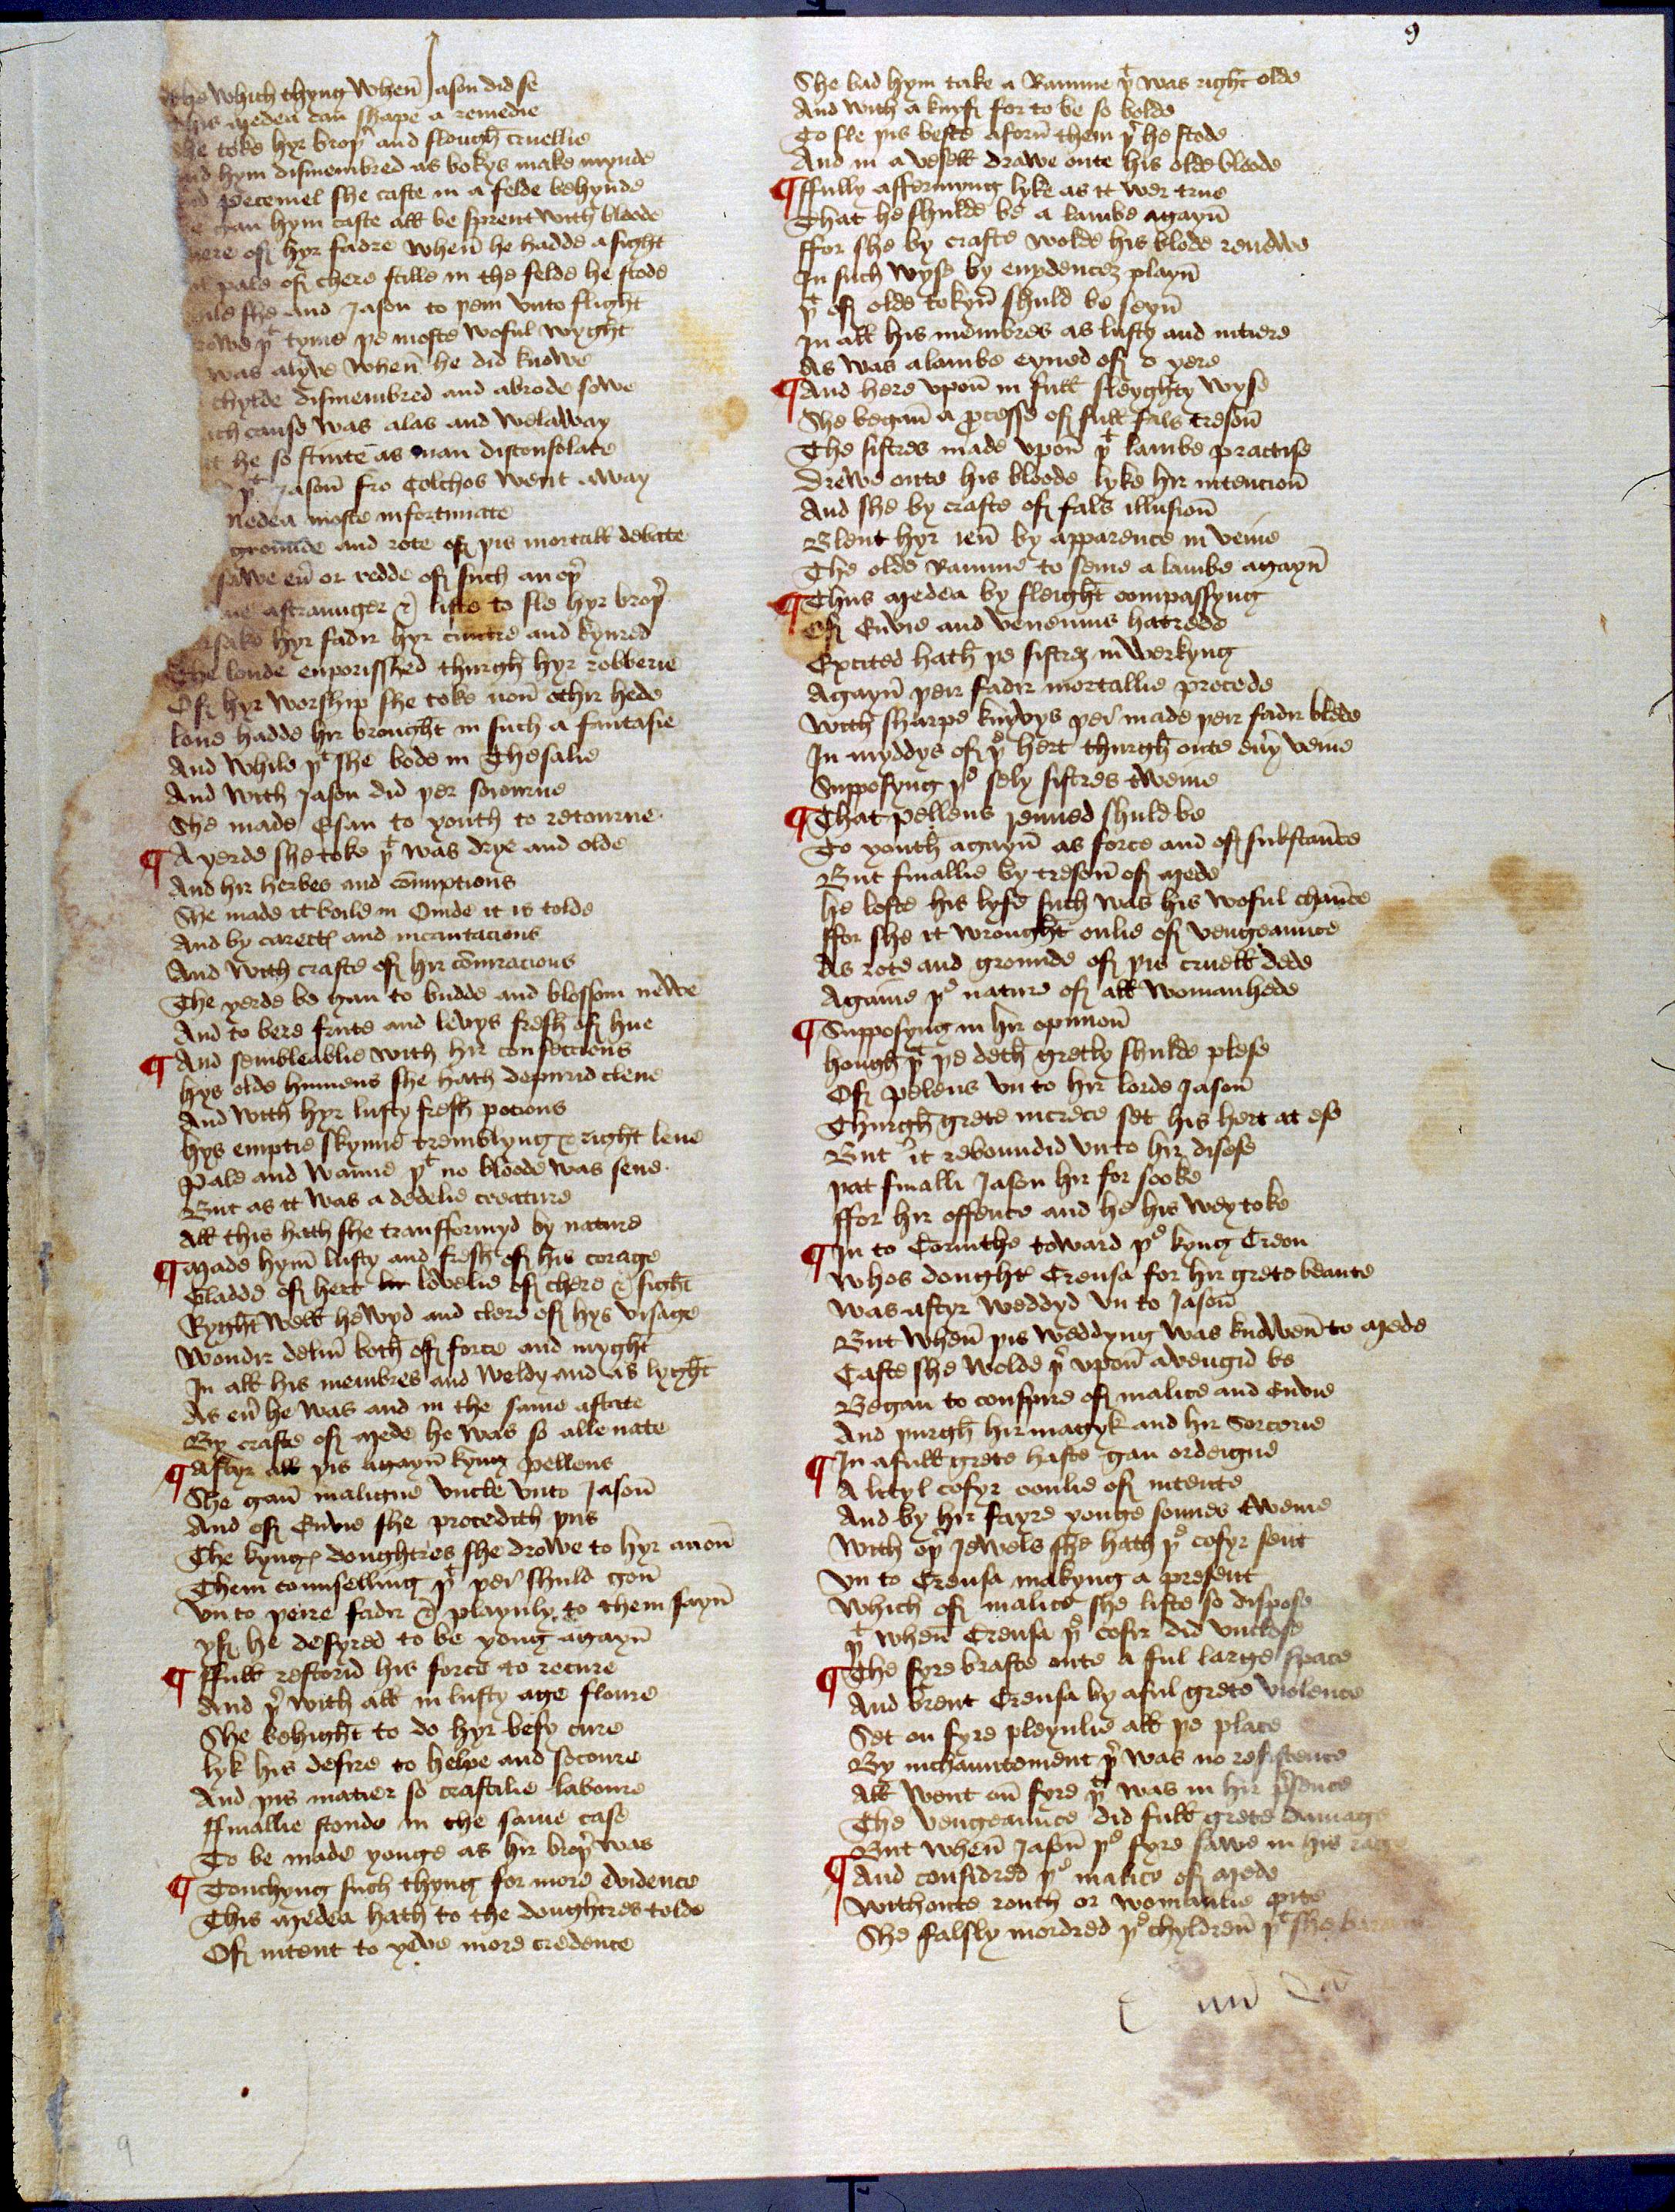 9
the which thyng when Jason did se
this Medea can shape a remedie
she toke hyr broþer and slough cruellie
and hym dismembred as bokys make mynde
and pecemel she caste in a felde behynde
gan hym caste all be sprent with bloode
where of hyr fadre when he hadde a sight
pale of chere stille in the felde he stode
while she and Jason to þem vnto flight
þt tyme þe moste woful wyght
was alyve when he did knowe
chylde dismembred and abrode sowe
cause was alas and welaway
he so stinte as man disconsolate
þt Jason fro Colchos went away
medea moste infortunate
grounde and rote of þis mortall debate
sawe eu or redde of such an oþer
a straunger & liste to sle hyr broþer
forsake hyr fadir hyr cuntre and kynred
The londe enporisshed thurgh hyr robberie
Of hyr worship she toke non othir hede
love hadde hir brought in such a fantasie
And while þt she bode in Thesalie
And with Jason did þer soiourne
She made Eson to youth to retourne
¶ A yerde she toke þt was drye and olde
And hir herbes and comiptions
She made it boile in Ovide it is tolde
And by carectes and incantacions
And with crafte of hir coniuracions
The yerde be gan to budde and blossom newe
And to bere frute and levys fresh of hue
¶ And sembleablie with hir confections
hys olde humeurs she hath depurid clene
And with hyr lusty fresh potions
hys emptie skynne tremblyng & right lene
Pale and wanne þt no bloode was sene
But as it was a dedelie creature
All this hath she transformyd by nature
¶ Made hym lusty and fresh of his corage
Gladde of hert lovelie of chere & sight
Ryght well hewyd and clere of hys visage
Wondir deliu both of force and myght
In all his membres and weldy and as lyght
As eu he was and in the same astate
By crafte of Mede he was so allenate
¶ Aftyr all þis agayn kyng Pelleus
She gan maligne vncle vnto Jason
And of Envie she procedith þus
The kynges doughtres she drowe to hyr anon
Them counselling þt þei shuld gon
Vnto þeire fadir & playnly to them sayn
yf he desyred to be yong agayn
¶ ffull restorid his force to recure
And þer with all in lusty age floure
She behight to do hyr besy cure
lyk his desire to helpe and socoure
And þis matier so craftilie laboure
ffinallie stonde in the same case
To be made yonge as hir broþer was
¶ Touchyng such thyng for more evidence
This Medea hath to the doughtres tolde
Of intent to yeve more credence
She bad hym take a Ramme þt was right olde
And with a knyf for to be so bolde
To sle þis beste aforn them þer he stode
And in a vesell drawe oute his olde bloode
¶ ffully affermyng lyke as it wer true
That he shulde be a lambe agayn
ffor she by crafte wolde his blode renewe
In such wyse by euydencez playn
þt of olde tokyn shuld be seyn
In all his membres as lusty and intiere
As was a lambe eyned of o yere
¶ And here vpon in full sleyghty wyse
She began a processe of full fals treson
The sistres made vpon þt lambe practise
Drewe oute his bloode lyke hir intencion
And she by crafte of fals illusion
Blent hyr ien by apparence in veine
The olde Ramme to seme a lambe agayn
¶ Thus Medea by sleight compassyng
Of Envie and venemus hatrede
Excited hath þe sistrez in werkyng
Agayn þeir fadir mortallie procede
With sharpe knyvys þei made þeir fadir blede
In myddys of þe hert thurgh oute euery veine
Supposyng þe sely sistres tweine
¶ That Pelleus renued shuld be
To youth agayn as force and of substance
But finallie by treson of Mede
he loste his lyfe such was his woful chance
ffor she it wrought onlie of vengeaunce
As rote and grounde of þis cruell dede
Againe þe nature of all womanhede
¶ Supposyng in hir opinion
hough þt þe deth gretly shulde plese
Of Peleus vn to hir lorde Jason
Thurgh grete increce set his hert at ese
But it reboundid vnto hir disese
þat finalli Jason hir for sooke
ffor hir offence and he his wey toke
¶ In to Corinthe toward þe kyng Creon
Whos doughter Creusa for hir grete beaute
Was aftyr weddyd vn to Jason
But when þis weddyng was knowen to Mede
Caste she wolde þer vpon avengid be
Began to conspire of malice and Envie
And þurgh hir magyk and hir Sorcerie
¶ In a full grete haste gan ordeigne
A lityl cofyr oonlie of intente
And by hir fayre yonge sonnes tweine
With oþer Jewels she hath þe cofyr sent
Vn to Creusa makyng a present
Which of malice she liste so dispose
þt when Creusa þe cofir did vnclose
¶ The fyre braste oute a ful large space
And brent Creusa by a ful grete violence
Set on fyre pleynlie all þe place
By inchauntement þer was no resistence
All went on fyre þt was in hir presence
The vengeaunce did full grete damage
But when Jason þe fyre sawe in his rage
¶ And considred þe malice of Mede
withoute routh or womanlie pite
She falsly mordred þe chyldren þt she
9